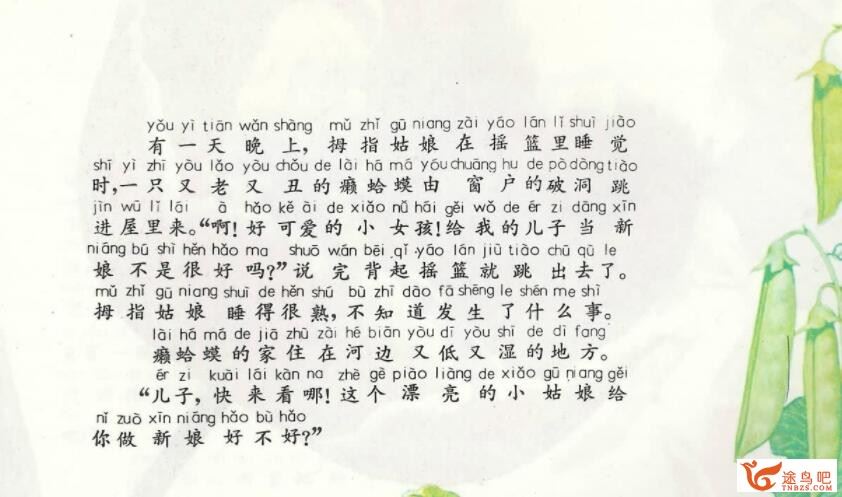 yǒu yì tiān wǎn shàng mǔ zhǐ gū niang zài yáo lán lǐ shuì jiào
有一天晚上，拇指姑娘在摇篮里睡觉
shí yì zhī yòu lǎo yòu chǒu de lài há má yóu chuāng hu de pò dòng tiào
时，一只又老又丑的癞蛤蟆由窗户的破洞跳
jìn wū lǐ lái à hǎo kě ài de xiǎo nǚ hái gěi wǒ de ér zi dāng xīn
进屋里来。“啊！好可爱的小女孩！给我的儿子当新
niáng bú shì hěn hǎo ma shuō wán bēi qǐ yáo lán jiù tiào chū qù le
娘不是很好吗？”说完背起摇篮就跳出去了。
mǔ zhǐ gū niang shuì de hěn shú bù zhī dào fā shēng le shén me shì
拇指姑娘睡得很熟，不知道发生了什么事。
lài há má de jiā zhù zài hé biān yòu dī yòu shī de dì fang
癞蛤蟆的家住在河边又低又湿的地方。
ér zi kuài lái kàn na zhè gè piào liàng de xiǎo gū niang gěi
“儿子，快来看哪！这个漂亮的小姑娘给
nǐ zuò xīn niáng hǎo bù hǎo
你做新娘好不好？”
途鸟吧
TNBZS.COM